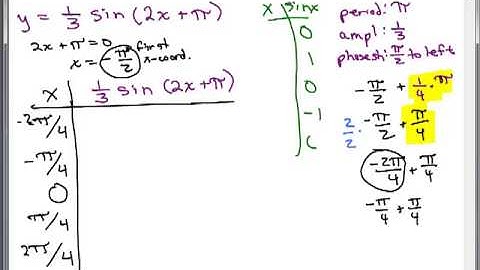 y = 1/3 sin (2x+π)
2x+π=0
x = -π/2 first x-coord.
x | 1/3 sin (2x+π)
-2π/4
-π/4
0
π/4
2π/4
x | sinx
0
1
0
-1
period: π
ampl: 1/3
phasesh: π/2 to left
-π/2 + 1/4 · π
2/2 · -π/2 + π/4
-2π/4 + π/4
-π/4 + π/4